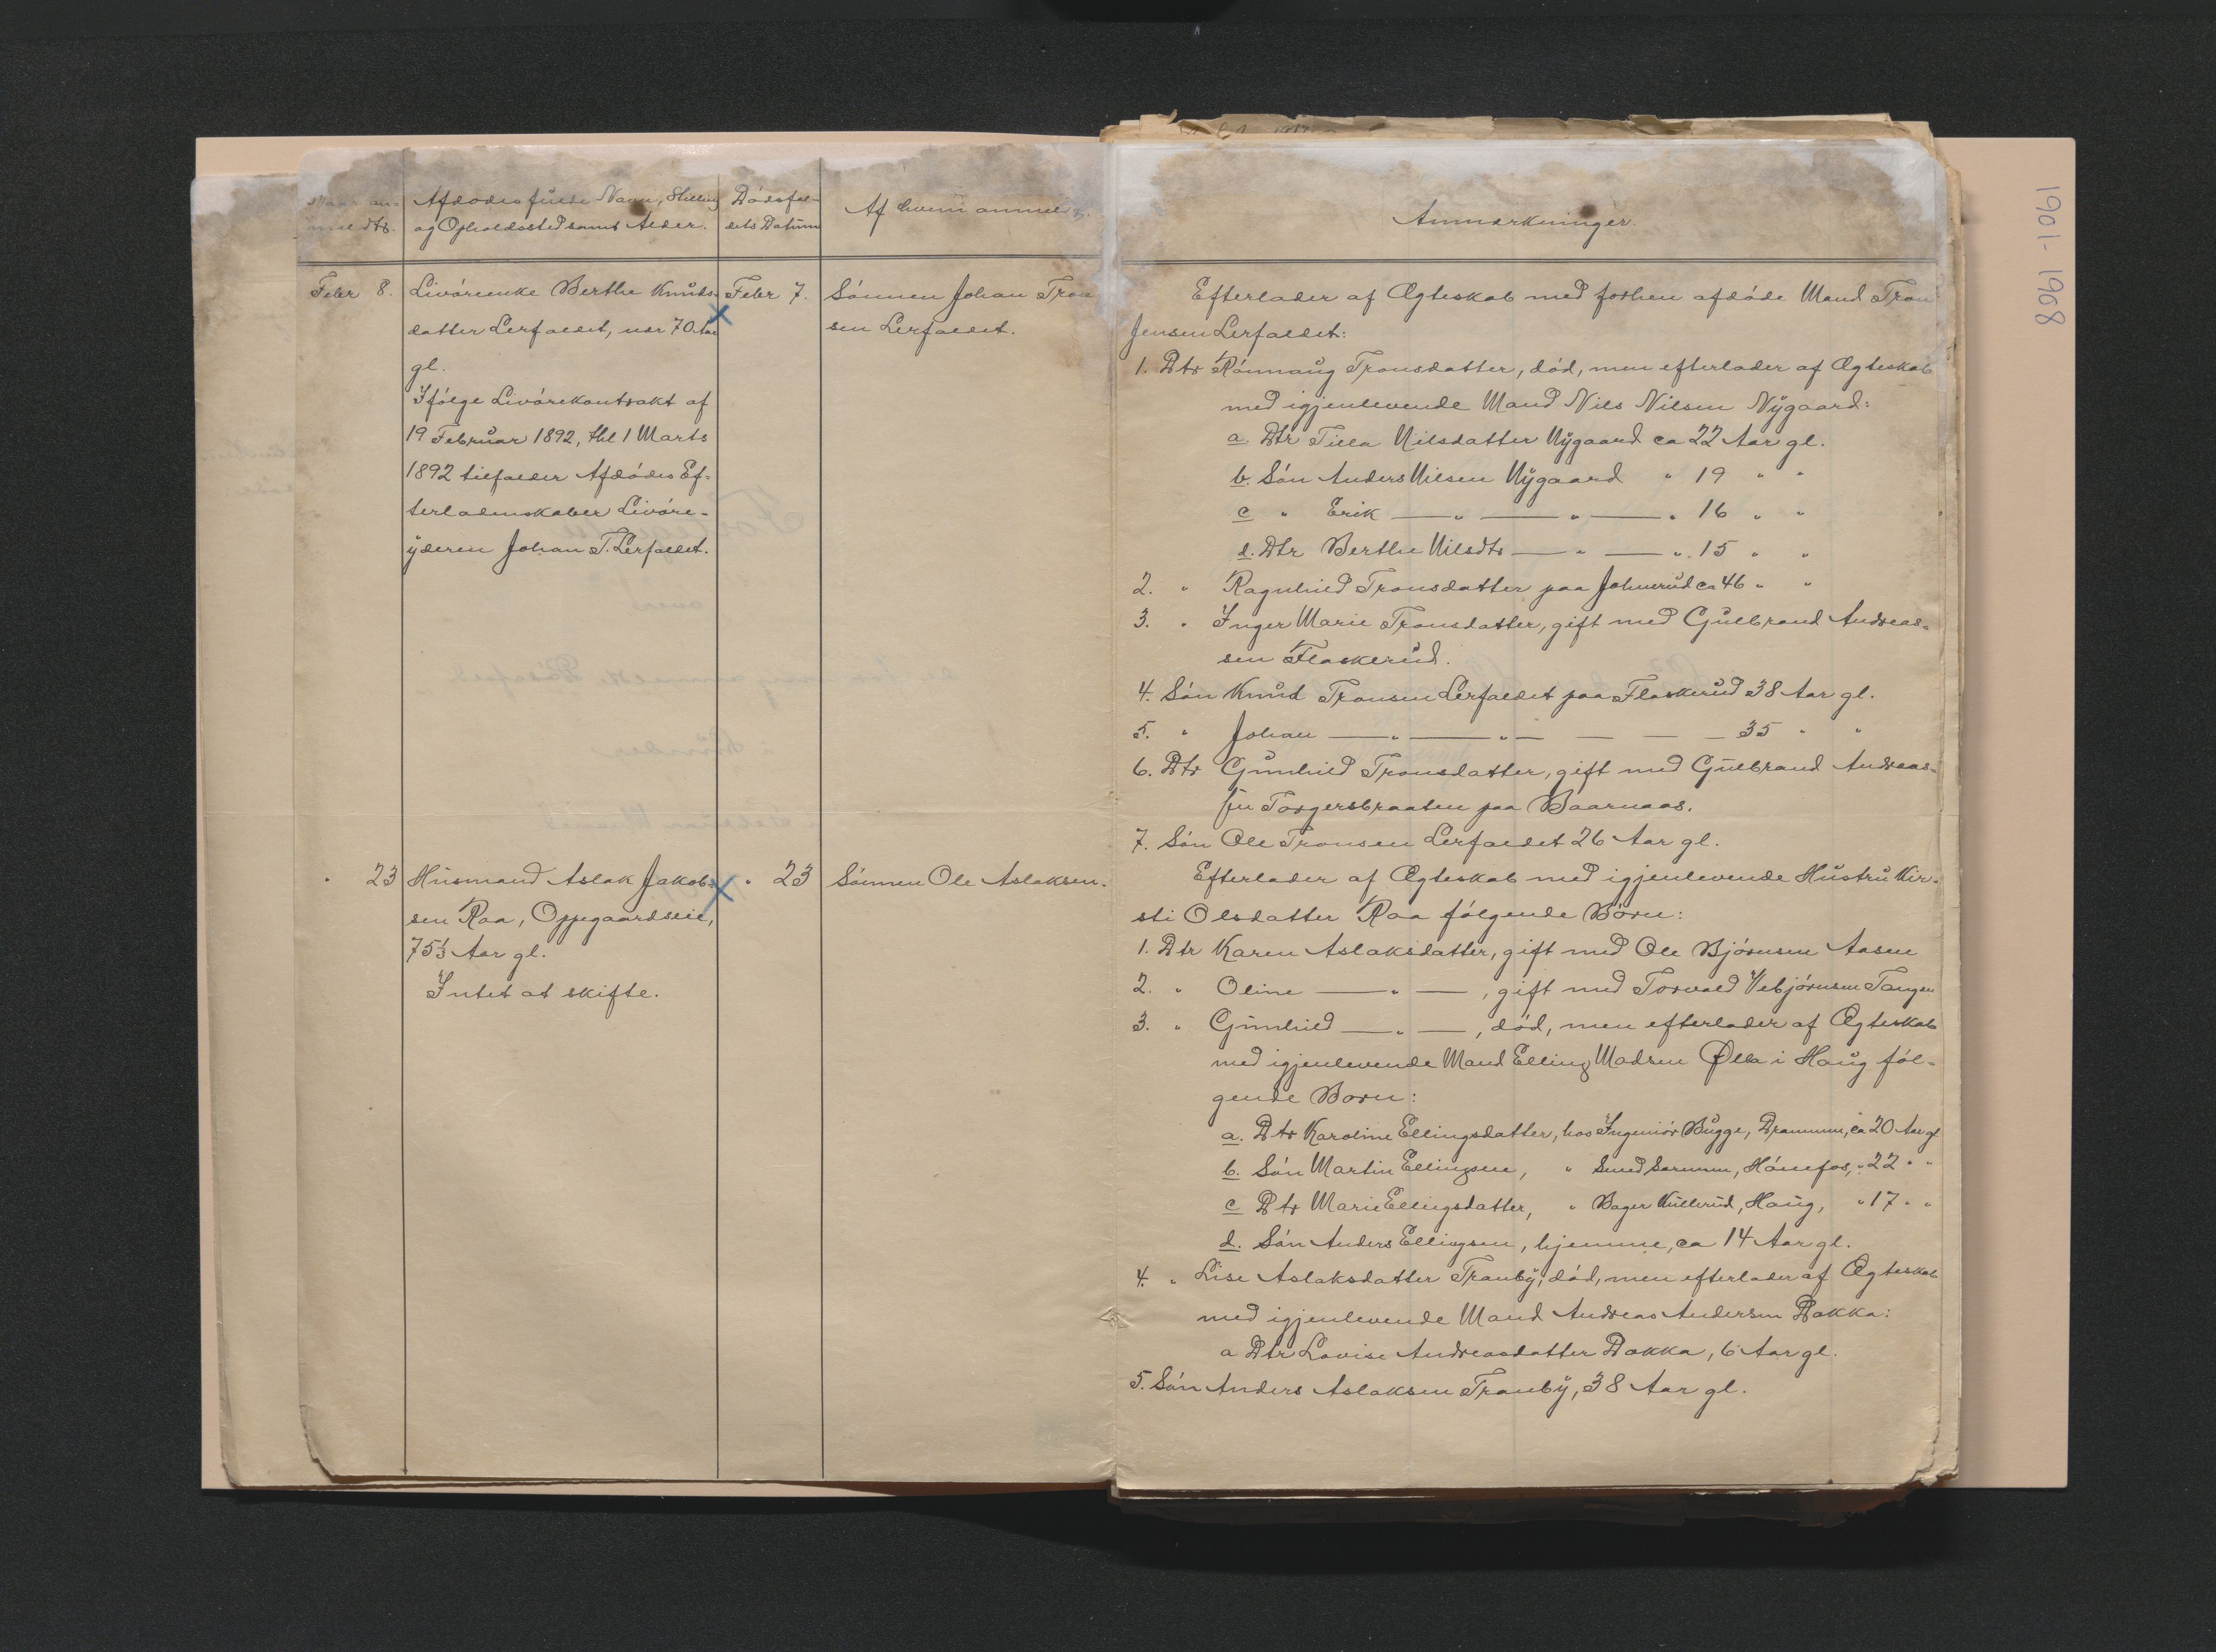 Naar an-
meldts.
Afdødes fulde Navn, Stilling
og Opholdssted samt Alder.
Dødsfal-
dets Datum
Af hvem anmeldt.
Febr 8.
Livøreenke Berthe Knuds-
datter Lerfaldet, nær 70 Aar
gl.
Ifølge Livørekontrakt af
19 Februar 1892, thl 1 Marts
1892 tilfalder Afdødes Ef-
terladenskaber Livøre-
yderen Johan T. Lerfaldet.
Febr 7.
Sønnen Johan Tron
sen Lerfaldet.
" 23
Husmand Aslak Jakob-
sen Raa, Oppegaardseie,
75⅓ Aar gl.
Intet at skifte.
" 23
Sønnen Ole Aslaksen.
Anmærkninger.
Efterlader af Ægteskab med forhen afdøde Mand Tron
Jensen Lerfaldet:
1. Dtr Rønnaug Tronsdatter, død, men efterlader af Ægteskab
med igjenlevende Mand Nils Nilsen Nygaard:
a Dtr Tilla Nilsdatter Nygaard ca 22 Aar gl.
b. Søn Anders Nilsen Nygaard " 19 " "
c " Erik — " — " — " 16 " "
d. Dtr Berthe Nilsdtr — " — " 15 " "
2. " Ragnhild Tronsdatter paa Johnerud ca 46 " "
3. " Inger Marie Tronsdatter, gift med Gulbrand Andreas-
sen Flaskerud.
4. Søn Knud Tronsen Lerfaldet paa Flaskerud 38 Aar gl.
5. " Johan — " — " — — — — 35 " "
6. Dtr Gunhild Tronsdatter, gift med Gulbrand Andreas-
sen Torgersbraaten paa Baarnaas.
7. Søn Ole Tronsen Lerfaldet 26 Aar gl.
Efterlader af Ægteskab med igjenlevende Hustru Kir-
sti Olsdatter Raa følgende Børn:
1. Dtr Karen Aslaksdatter, gift med Ole Bjørnsen Aasen
2. " Oline — " —, gift med Torvald Vebjørnsen Tangen
3. " Gunhild — " —, død, men efterlader af Ægteskab
med igjenlevende Mand Elling Madsen Ølla i Haug føl-
gende Børn:
a. Dtr Karoline Ellingsdatter, hos Ingeniør Bugge, Drammen, ca 20 Aar gl
b. Søn Martin Ellingsen, " Smed Hønefos, " 22 " "
c Dtr Marie Ellingsdatter, " Bager Kullerud, Haug, " 17 " "
d. Søn Anders Ellingsen, hjemme, ca 14 Aar gl.
4. " Lise Aslaksdatter Tranby, død, men efterlader af Ægteskab
med igjenlevende Mand Andreas Andersen Dokka:
a Dtr Lovise Andreasdatter Dokka, 6 Aar gl.
5. Søn Anders Aslaksen Tranby, 38 Aar gl.
1901-1908